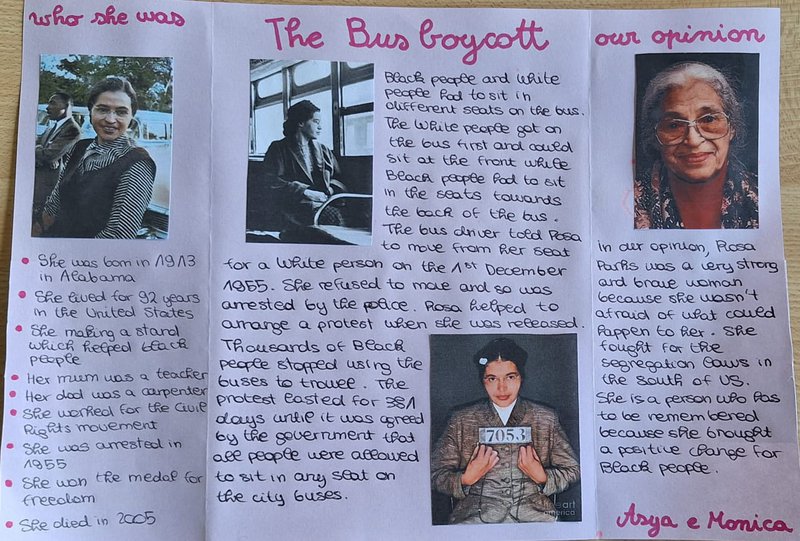 who she was
She was born in 1913
in Alabama
She lived for 92 years
in the United States
She making a stand
which helped black
people
Her mum was a teacher
Her dad was a carpenter
She worked for the Civil
Rights movement
She was arrested in
1955
She won the medal for
freedom
She died in 2005
The Bus boycott
Black people and white
people had to sit in
different seats on the bus.
The White people got on
the bus first and could
sit at the front while
Black people had to sit
in the seats towards
the back of the bus.
The bus driver told Rosa
to move from her seat
for a white person on the 1st December
1955. She refused to move and so was
arrested by the police. Rosa helped to
arrange a protest when she was released.
Thousands of Black
people stopped using the
buses to travel. The
protest lasted for 381
days until it was agreed
by the government that
all people were allowed
to sit in any seat on
the city buses.
7053
america
our opinion
in our opinion, Rosa
Parks was a very strong
and brave woman
because she wasn't
afraid of what could
happen to her. She
fought for the
segregation laws in
the south of US.
She is a person who has
to be remembered
because she brought
a positive change for
Black people.
Asya e Monica